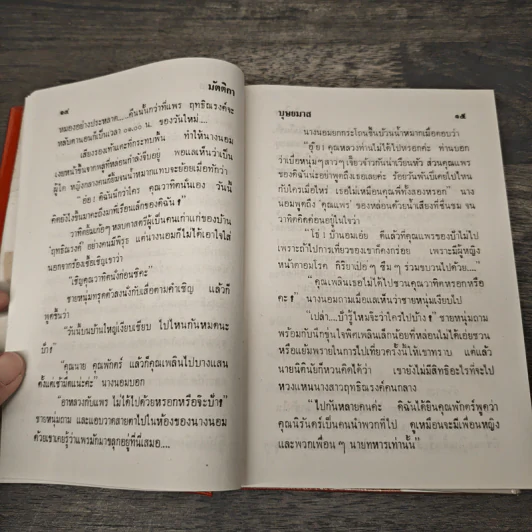 ๑๔
มัตติกา
หมองอย่างประหลาด.....คืนนั้นกว่าที่แพร ฤทธิณรงค์จะ
หลับตานอนก็เป็นเวลา ๐๑.๐๐ น. ของวันใหม่....
เสียงรองเท้าแตะที่กระทบพื้น ทำให้นางนอม
เงยหน้าขึ้นจากพลูที่หล่อนกำลังจีบอยู่ พอแลเห็นว่าเป็น
ผู้ใด หญิงกลางคนก็ยิ้มจนน้ำหมากแทบจะย้อยเมื่อทักว่า
"อ้อ ! ดิฉันนึกว่าใคร คุณวาทิตนั่นเอง วันนี้
คิดยังไงขึ้นมาคะถึงมาที่เรือนเล็กของดิฉัน ?"
วาทิตยิ้มเก้อๆ หลบตาสตรีผู้เป็นคนเก่าแก่ของบ้าน
'ฤทธิณรงค์' อย่างคนมีพิรุธ แต่นางนอมก็ไม่ได้เอาใจใส่
นอกจากร้องเชื้อเชิญเขาว่า
"เชิญคุณวาทิตนั่งก่อนซีคะ"
ชายหนุ่มทรุดตัวลงนั่งกับเสื่อตามคำเชิญ แล้วก็
พูดขึ้นว่า
"วันนี้บนบ้านใหญ่เงียบเชียบ ไปไหนกันหมดนะ
ป้า ?"
"คุณนาย คุณพักตร์ แล้วก็คุณเพลินไปบางแสน
ตั้งแต่เช้ามืดแน่ะค่ะ" นางนอมบอก
"ยาหลวงกับแพร ไม่ได้ไปด้วยหรอกหรือจ๊ะป้า ?"
ชายหนุ่มถาม และแอบวาดสายตาไปในห้องของนางนอม
ด้วยเขาเคยรู้ว่าแพรมักมาขลุกอยู่ที่นี่เสมอ....
บุษยมาส
๑๕
นางนอมยกกระโถนขึ้นบ้วนน้ำหมากเมื่อตอบว่า
"อุ๊ย ! คุณหลวงท่านไม่ได้ไปหรอกค่ะ ท่านบอก
ว่าเบื่อหนุ่มๆสาวๆเจี๊ยวจ๊าวกันน่าเวียนหัว ส่วนคุณแพร
ของดิฉันน่ะอย่าพูดถึงเธอเลยค่ะ ร้อยวันพันปีเคยไปไหน
กับใครเมื่อไหร่ เธอไม่เหมือนคุณพี่ทั้งสองหรอก" นาง
นอมพูดถึง 'คุณแพร' ของหล่อนด้วยน้ำเสียงที่ชื่นชม จน
วาทิตคิดค่อนอยู่ในใจว่า
"โธ่ ! ป้านอมเอ๋ย ดีแล้วที่คุณแพรของป้าไม่ไป
เพราะถ้าไปการเที่ยวของเขาก็คงกร่อย เพราะมีผู้หญิง
หน้าตาอมโรค กิริยาเปิ่นๆ ซึมๆ ร่วมขบวนไปด้วย...."
"คุณเพลินเธอไม่ได้ไปชวนคุณวาทิตหรอกหรือ
คะ ?" นางนอมถามเมื่อแลเห็นว่าชายหนุ่มเงียบไป
"เปล่า....ป้ารู้ไหมจ๊ะว่าใครไปบ้าง ?" ชายหนุ่มถาม
พร้อมกับนึกขุ่นใจพิศเพลินเล็กน้อยที่หล่อนไม่ได้เอ่ยชวน
หรือแย้มพรายในการไปเที่ยวครั้งนี้ให้เขาทราบ แต่แล้ว
นายนิติมันย์ก็หวนคิดได้ว่า เขายังไม่มีสิทธิอะไรที่จะไป
หวงแหนนางสาวฤทธิณรงค์คนกลาง
"ไปกันหลายคนค่ะ ดิฉันได้ยินคุณพักตร์พูดว่า
คุณนิรันดร์เป็นคนนำพวกที่ไป ดูเหมือนจะมีเพื่อนหญิง
และพวกเพื่อนๆ นายทหารเท่านั้น"